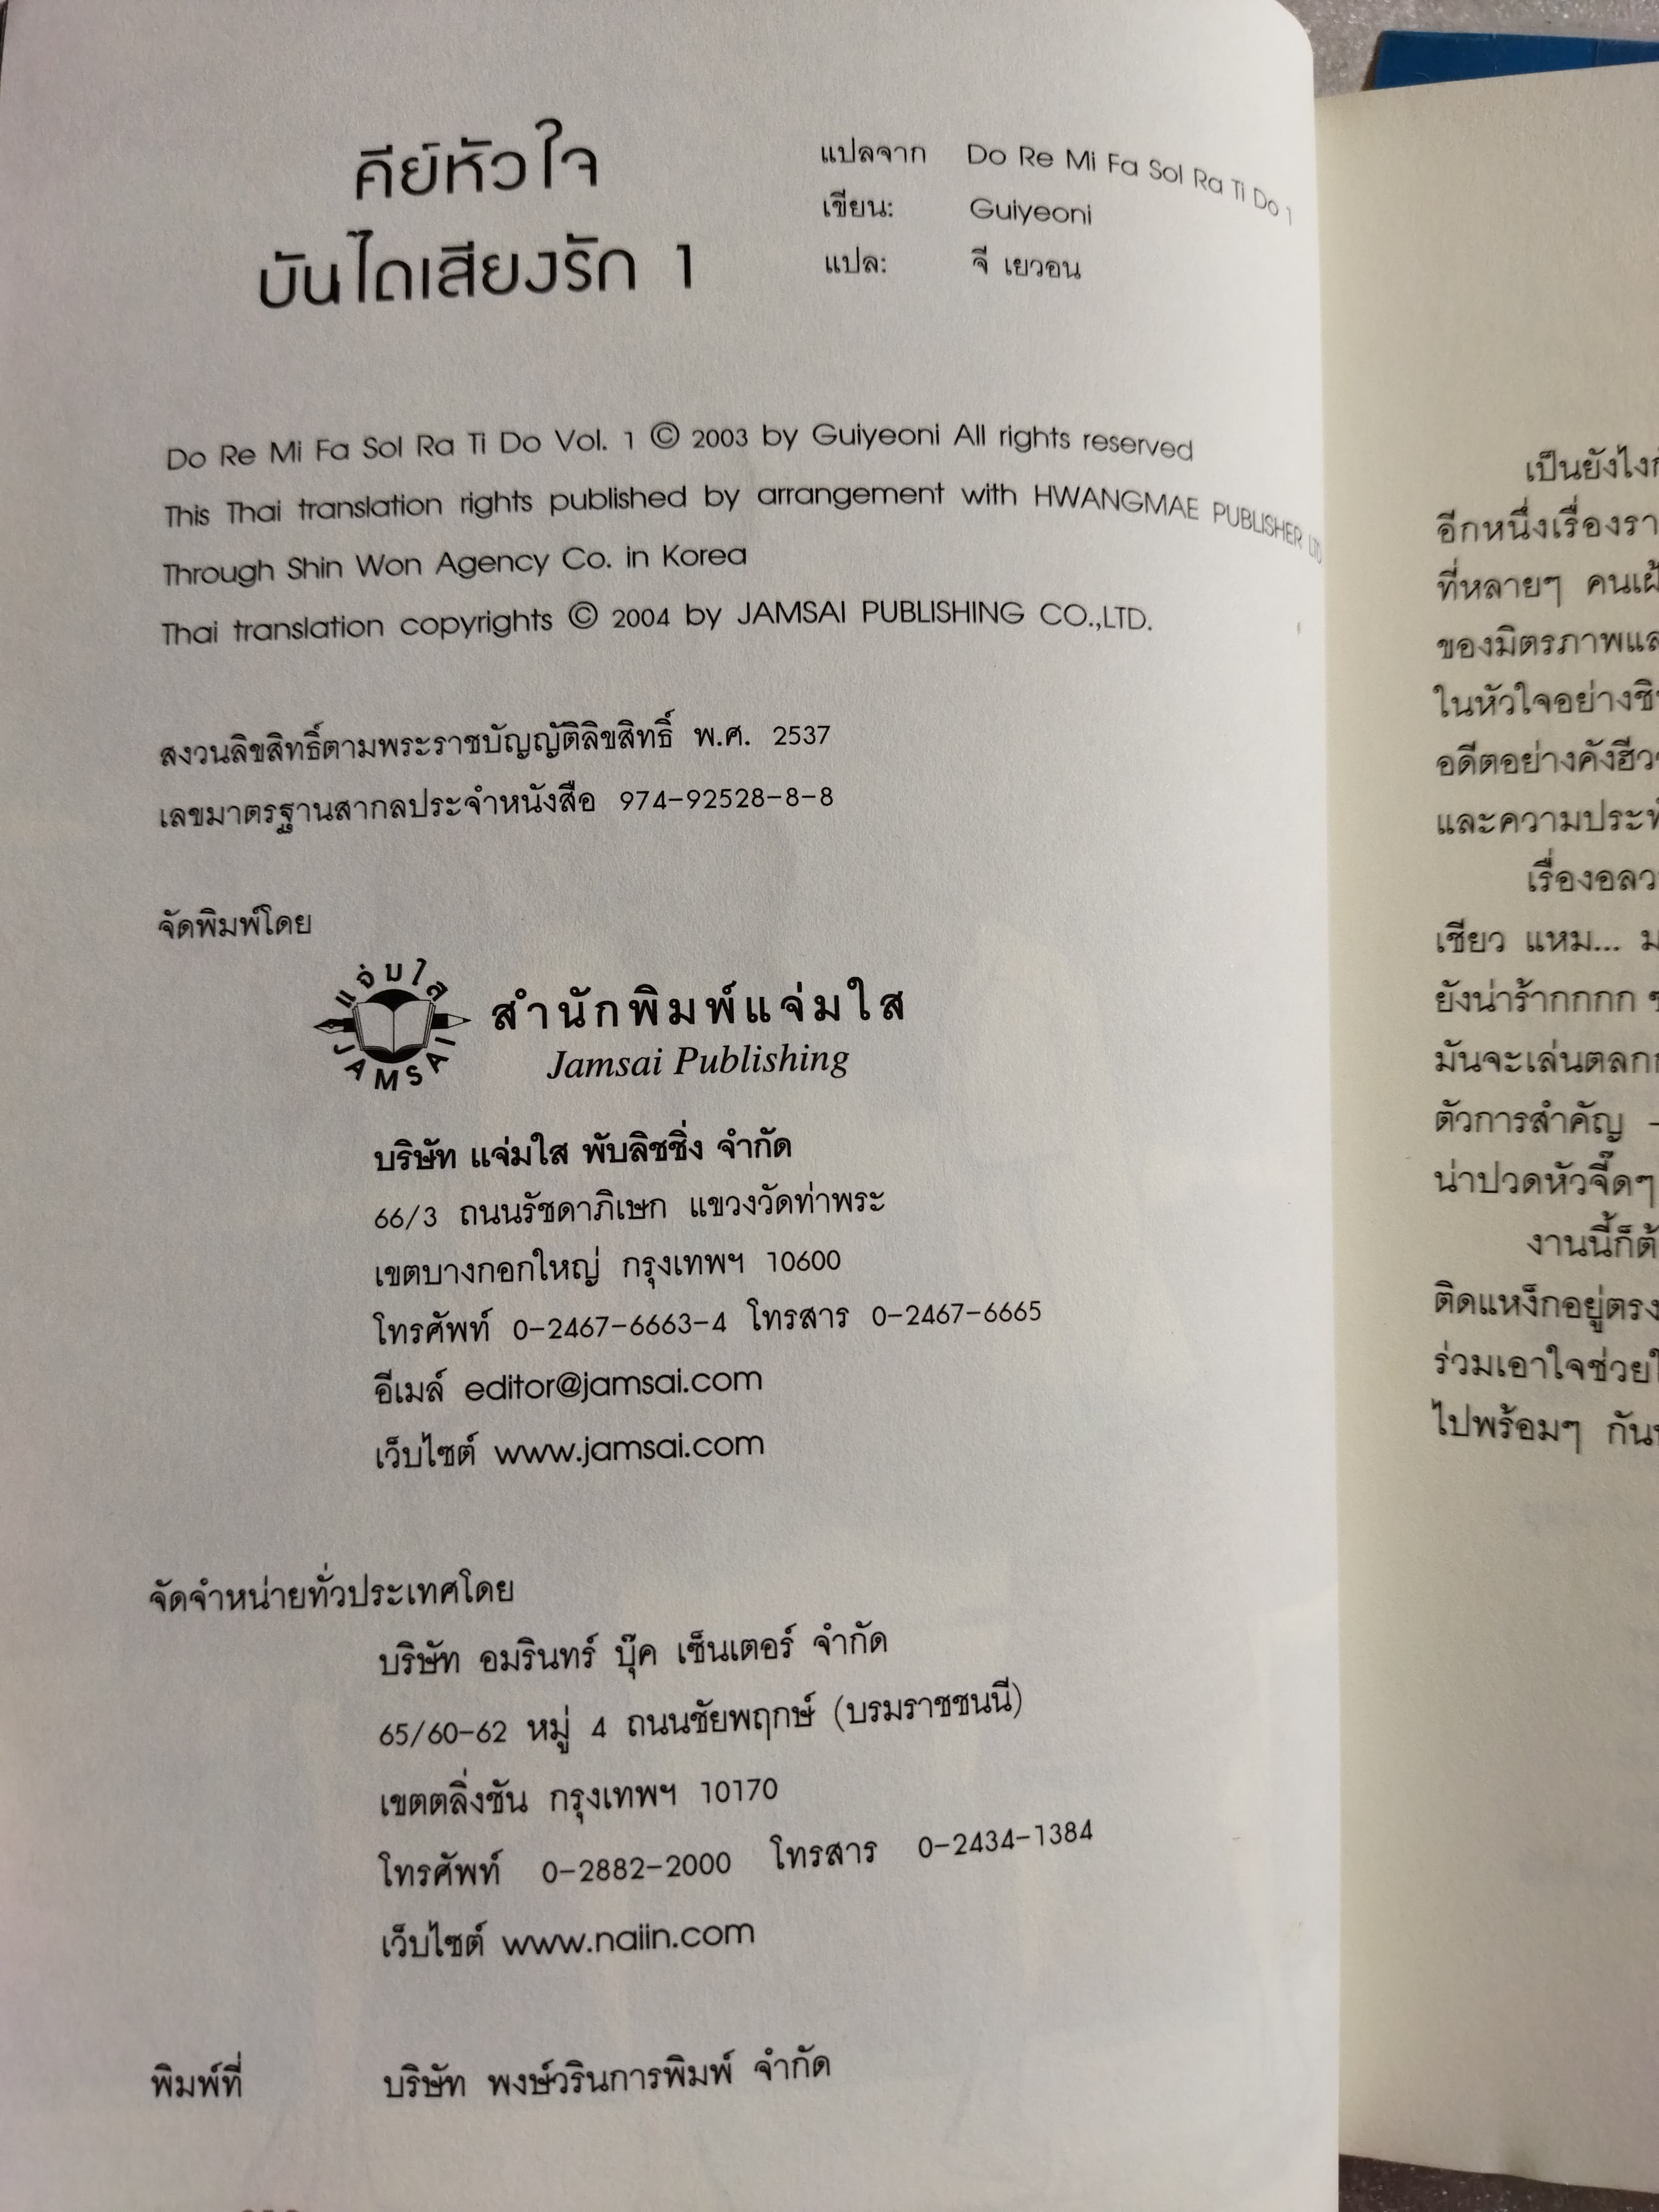 คีย์หัวใจ
บันไดเสียงรัก 1
แปลจาก Do Re Mi Fa Sol Ra Ti Do 1
เขียน: Guiyeoni
แปล: จี เยวอน
Do Re Mi Fa Sol Ra Ti Do Vol. 1 © 2003 by Guiyeoni All rights reserved
This Thai translation rights published by arrangement with HWANGMAE PUBLISHER LTD
Through Shin Won Agency Co. in Korea
Thai translation copyrights © 2004 by JAMSAI PUBLISHING CO.,LTD.
สงวนลิขสิทธิ์ตามพระราชบัญญัติลิขสิทธิ์ พ.ศ. 2537
เลขมาตรฐานสากลประจำหนังสือ 974-92528-8-8
จัดพิมพ์โดย
แจ่มใส
JAMSAI
สำนักพิมพ์แจ่มใส
Jamsai Publishing
บริษัท แจ่มใส พับลิชชิ่ง จำกัด
66/3 ถนนรัชดาภิเษก แขวงวัดท่าพระ
เขตบางกอกใหญ่ กรุงเทพฯ 10600
โทรศัพท์ 0-2467-6663-4 โทรสาร 0-2467-6665
อีเมล์ editor@jamsai.com
เว็บไซต์ www.jamsai.com
จัดจำหน่ายทั่วประเทศโดย
บริษัท อมรินทร์ บุ๊ค เซ็นเตอร์ จำกัด
65/60-62 หมู่ 4 ถนนชัยพฤกษ์ (บรมราชชนนี)
เขตตลิ่งชัน กรุงเทพฯ 10170
โทรศัพท์ 0-2882-2000 โทรสาร 0-2434-1384
เว็บไซต์ www.naiin.com
พิมพ์ที่ บริษัท พงษ์วรินการพิมพ์ จำกัด
เป็นยังไง
อีกหนึ่งเรื่องรา
ที่หลายๆ คนเฝ้
ของมิตรภาพแล
ในหัวใจอย่างชิ
อดีตอย่างคังฮีว
และความประทั
เรื่องอลว
เชียว แหม... ม
ยังน่าร้ากกกก
มันจะเล่นตลก
ตัวการสำคัญ -
น่าปวดหัวจี๊ดๆ
งานนี้ก็ต้
ติดแหง็กอยู่ตรง
ร่วมเอาใจช่วย
ไปพร้อมๆ กัน